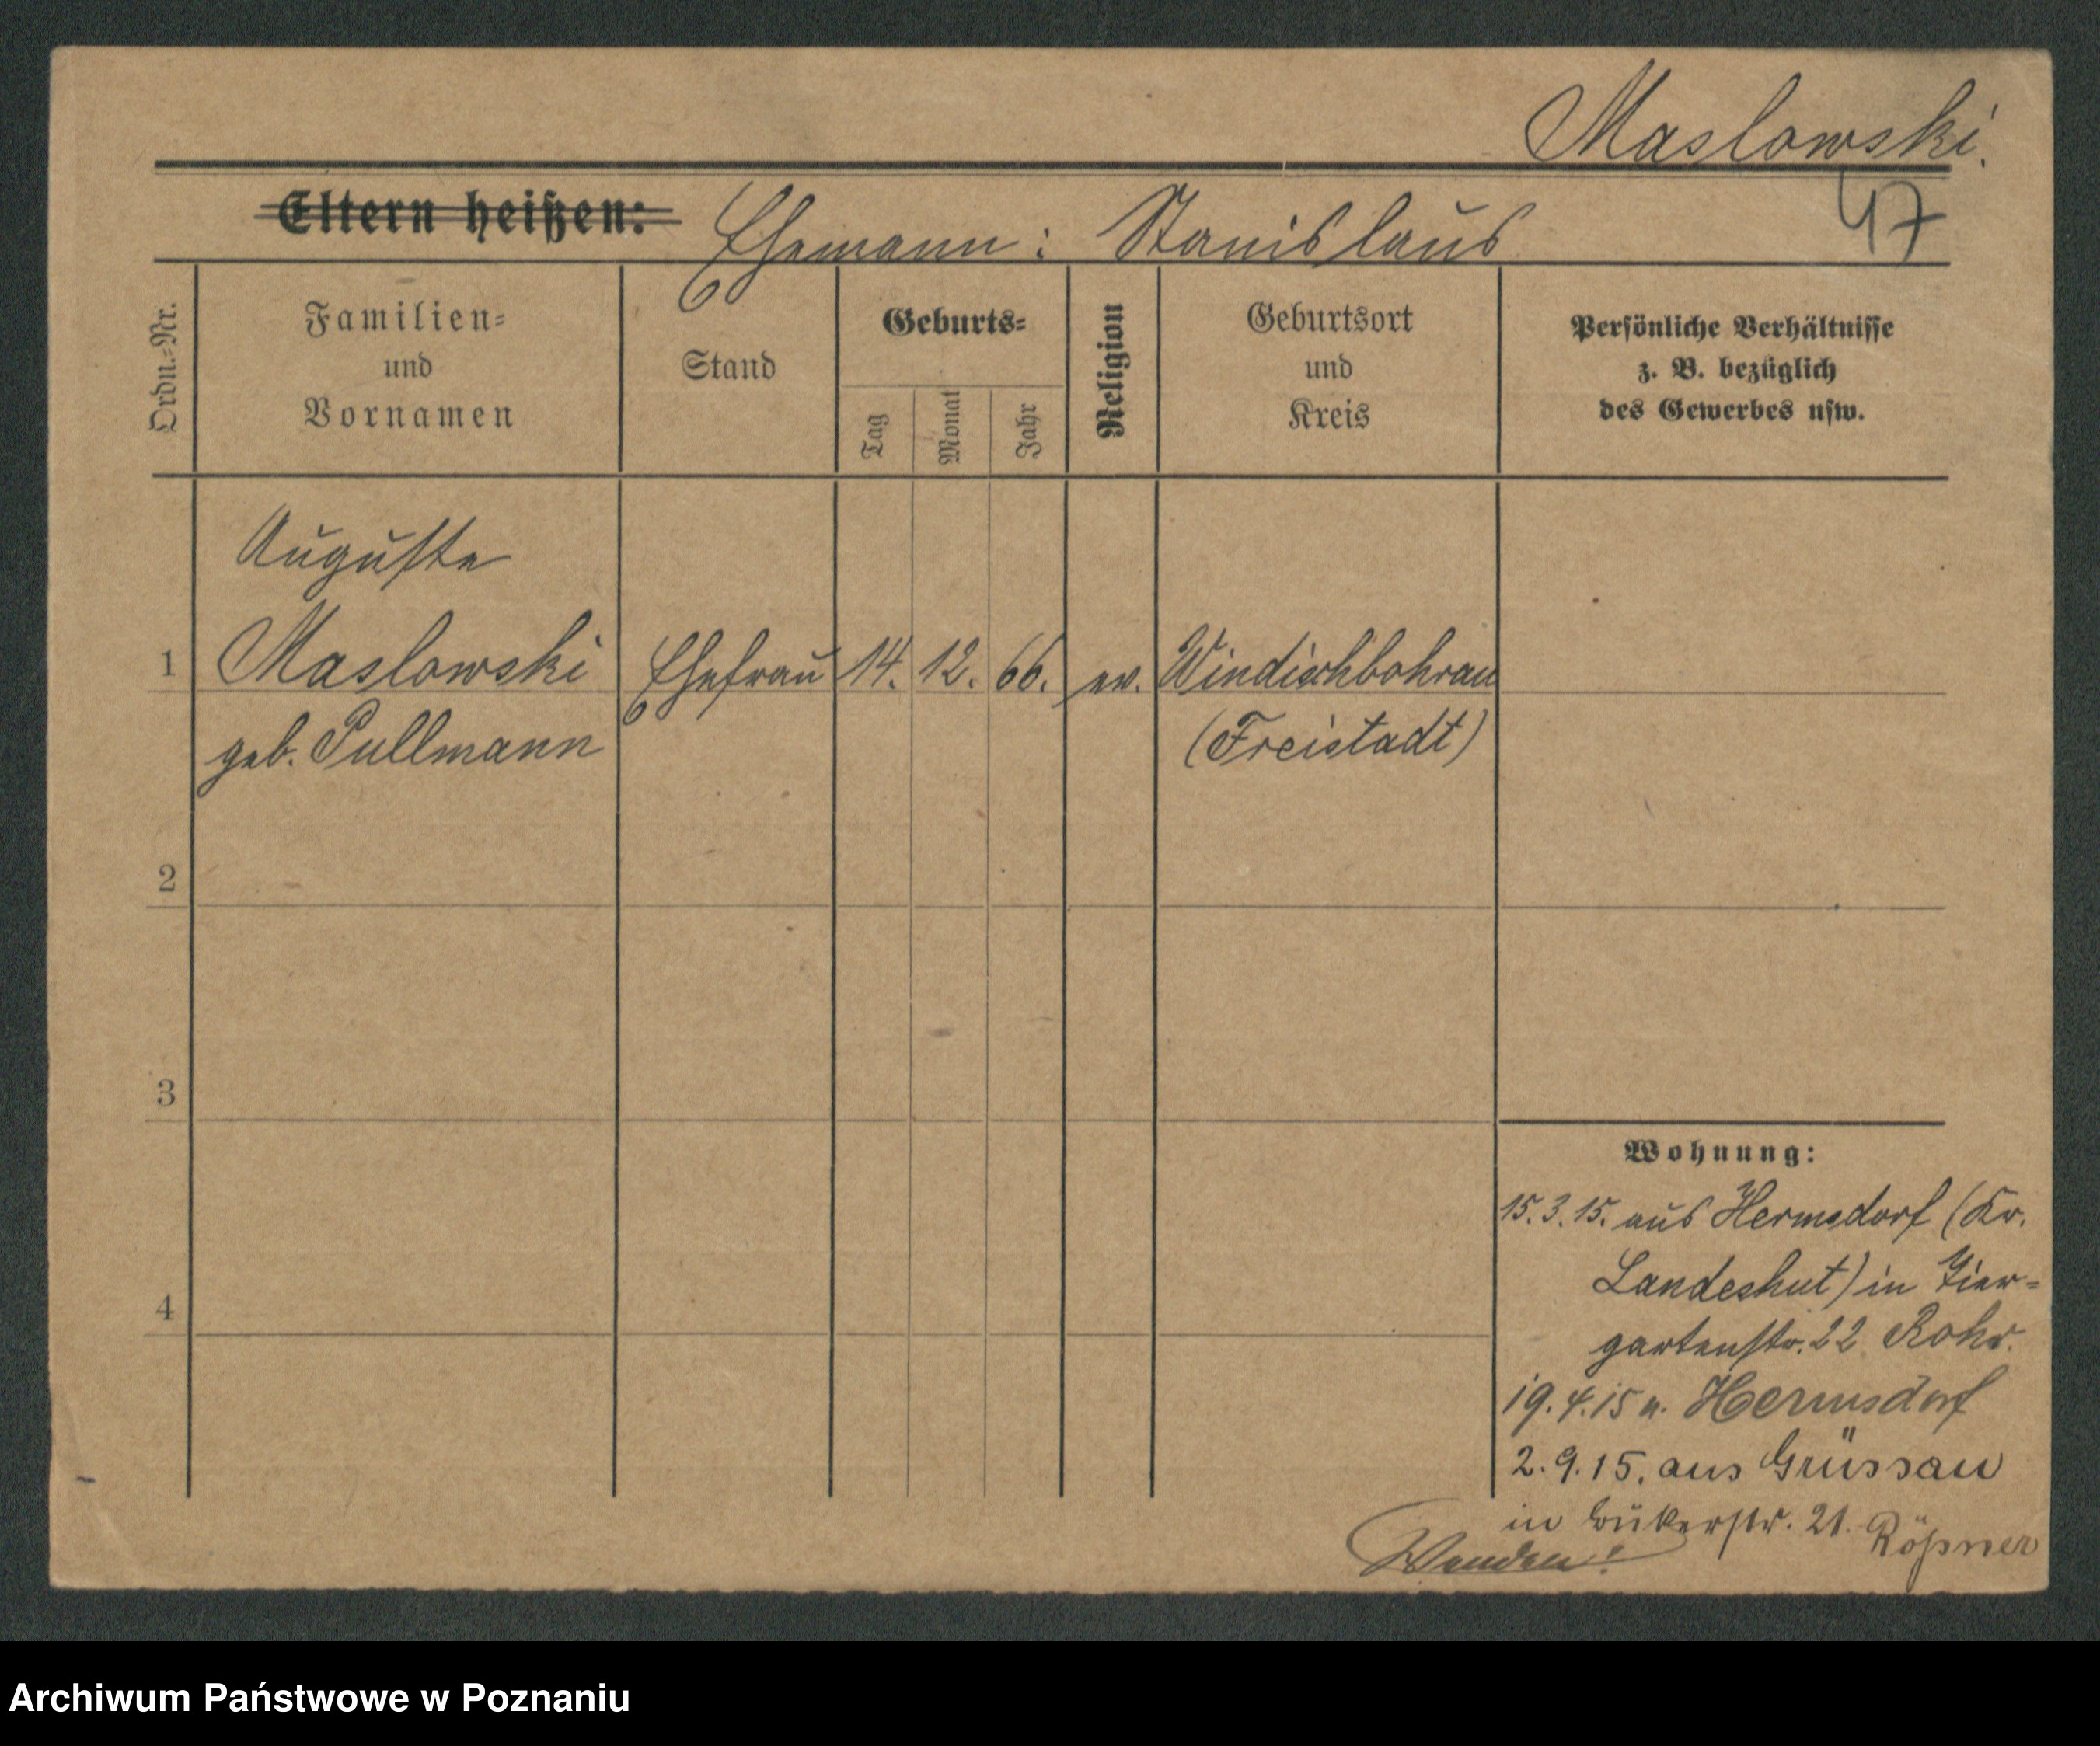 Maslowski.
47
Eltern heißen: Ehemann: Stanislaus
Ordn.-Nr.
Familien-
und
Vornamen
Stand
Geburts-
Tag
Monat
Jahr
Religion
Geburtsort
und
Kreis
Persönliche Verhältnisse
z. B. bezüglich
des Gewerbes usw.
Auguste
1 Maslowski Ehefrau 14. 12. 66. ev. Windischbohrau
geb. Pullmann (Freistadt)
2
3
4
Wohnung:
15.3.15. aus Hermsdorf (Kr.
Landeshut) in Tier-
gartenstr. 22 Rohr.
19.4.15 n. Hermsdorf
2.9.15. aus Grüssau
in Bükerstr. 21. Röpner
Wenden!
Archiwum Państwowe w Poznaniu